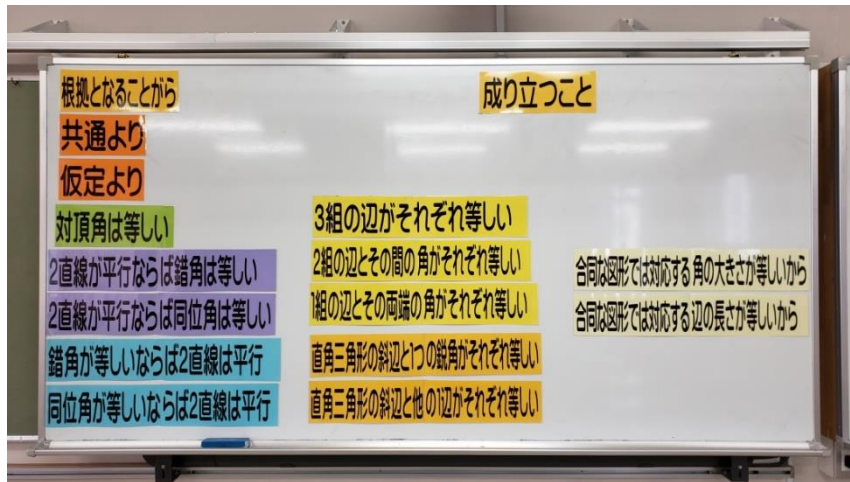 根拠となることがら
成り立つこと
共通より
仮定より
対頂角は等しい
2直線が平行ならば錯角は等しい
2直線が平行ならば同位角は等しい
錯角が等しいならば2直線は平行
同位角が等しいならば2直線は平行
3組の辺がそれぞれ等しい
2組の辺とその間の角がそれぞれ等しい
1組の辺とその両端の角がそれぞれ等しい
直角三角形の斜辺と1つの鋭角がそれぞれ等しい
直角三角形の斜辺と他の1辺がそれぞれ等しい
合同な図形では対応する角の大きさが等しいから
合同な図形では対応する辺の長さが等しいから